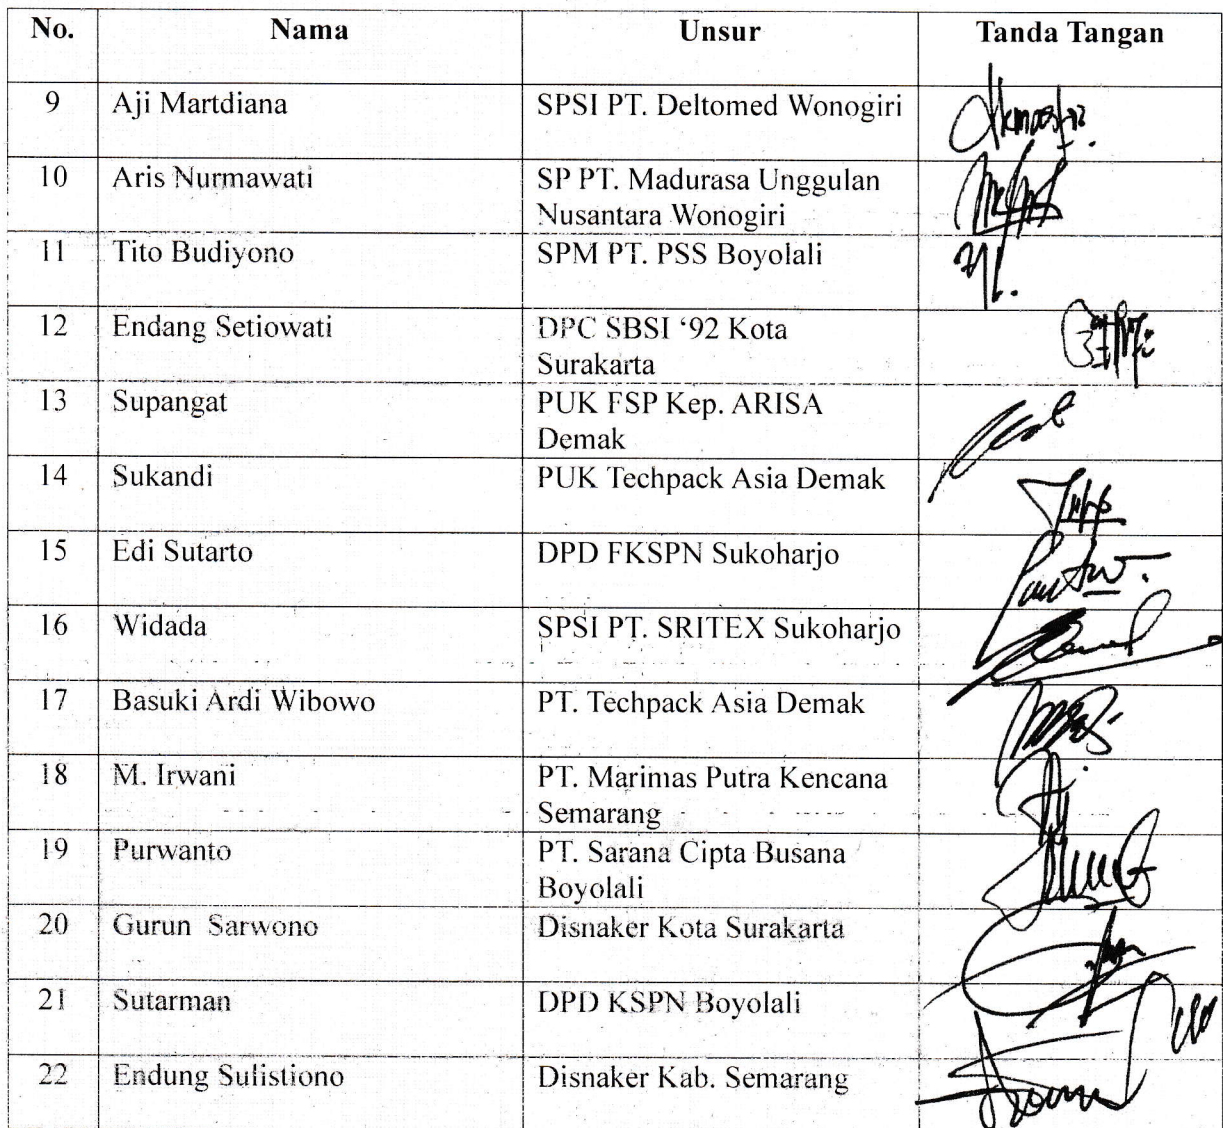 No. Nama Unsur Tanda Tangan
9 Aji Martdiana SPSI PT. Deltomed Wonogiri
10 Aris Nurmawati SP PT. Madurasa Unggulan
Nusantara Wonogiri
11 Tito Budiyono SPM PT. PSS Boyolali
12 Endang Setiowati DPC SBSI ‘92 Kota
Surakarta
13 Supangat PUK FSP Kep. ARISA
Demak
14 Sukandi PUK Techpack Asia Demak
15 Edi Sutarto DPD FKSPN Sukoharjo
16 Widada SPSI PT. SRITEX Sukoharjo
17 Basuki Ardi Wibowo PT. Techpack Asia Demak
18 M. Irwani PT. Marimas Putra Kencana
Semarang
19 Purwanto PT. Sarana Cipta Busana
Boyolali
20 Gurun Sarwono Disnaker Kota Surakarta
21 Sutarman DPD KSPN Boyolali
22 Endung Sulistiono Disnaker Kab. Semarang